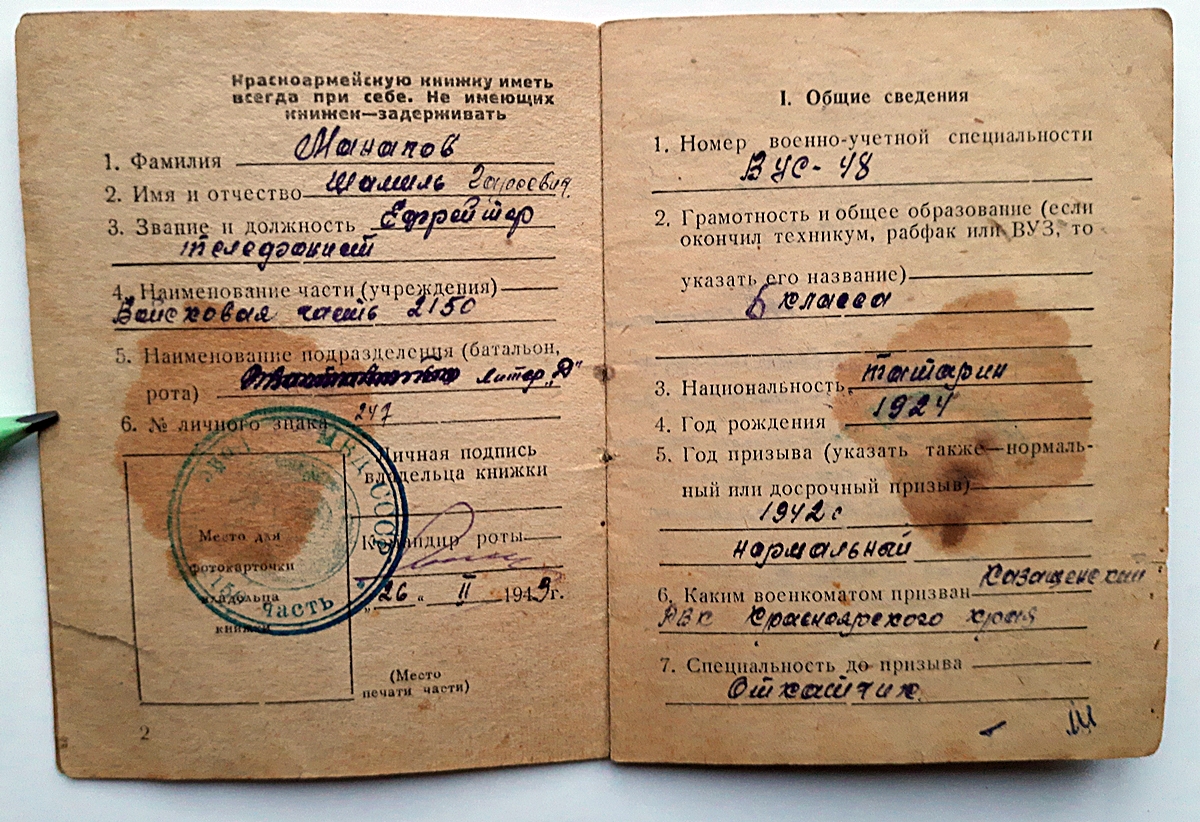 Красноармейскую книжку иметь
всегда при себе. Не имеющих
книжек—задерживать
1. Фамилия Манапов
2. Имя и отчество Шамиль Гареевич
3. Звание и должность Ефрейтор
телефонист
4. Наименование части (учреждения)
Войсковая часть 2150
5. Наименование подразделения (батальон,
рота) литер „Д"
6. № личного знака 247
Личная подпись
владельца книжки
Командир роты
„26" II 1949г.
Место для
фотокарточки
владельца
книжки
МВД СССР
часть
(Место
печати части)
2
I. Общие сведения
1. Номер военно-учетной специальности
ВУС-48
2. Грамотность и общее образование (если
окончил техникум, рабфак или ВУЗ, то
указать его название)
6 класса
3. Национальность татарин
4. Год рождения 1924
5. Год призыва (указать также—нормаль-
ный или досрочный призыв)
1942 г
нормальный
6. Каким военкоматом призван Казаченский
РВК Красноярского края
7. Специальность до призыва
Откатчик